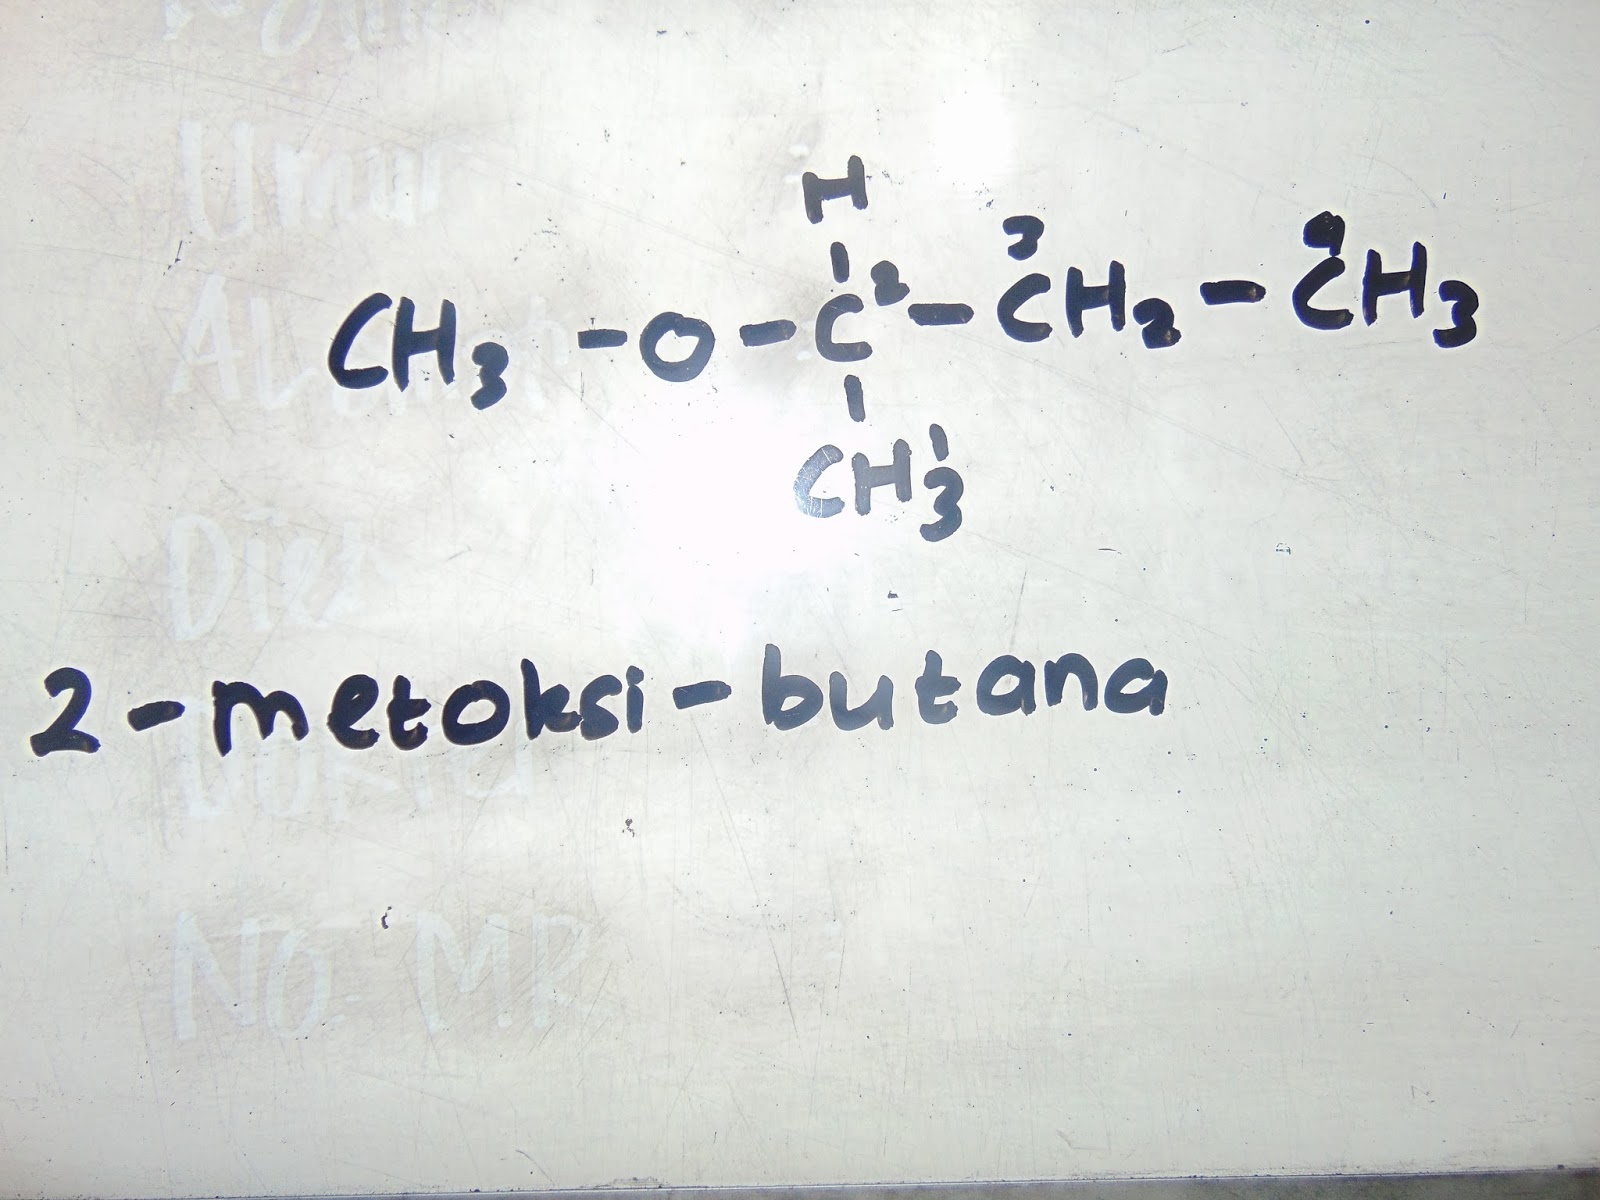 H
CH3 - O - C2 - 3CH2 - 4CH3
CH3 1
2-metoksi-butana
Umur
Diet
No. MR